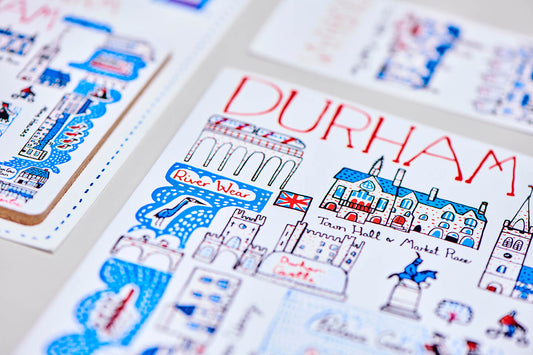 DURHAM
River Wear
Town Hall & Market Place
Durham
Castle
Palace Green